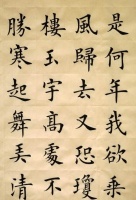 是何年我欲乘
風歸去又恐瓊
樓玉宇高處不
勝寒起舞弄清